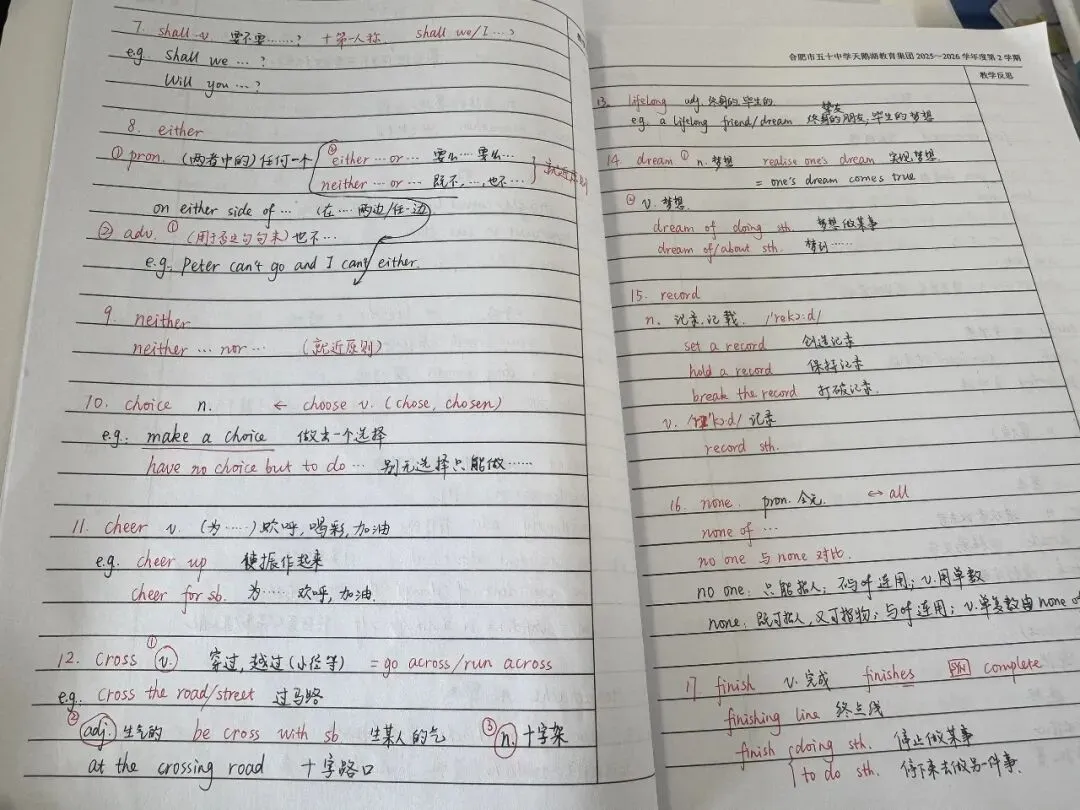 7. shall v. 要不要……? +第一人称 shall we/I …?
e.g. shall we …?
Will you …?
8. either
① pron. (两者中的)任何一个 ② either … or … 要么…要么…
neither … or … 既不,…,也不… 就近原则
on either side of … (在…两边/任一边)
② adv. ① (用于否定句句末)也不…
e.g. Peter can't go and I can't either.
9. neither
neither … nor … (就近原则)
10. choice n. ← choose v. (chose, chosen)
e.g. make a choice 做出一个选择
have no choice but to do … 别无选择只能做……
11. cheer v. (为……)欢呼,喝彩,加油
e.g. cheer up 使振作起来
cheer for sb. 为…… 欢呼,加油.
12. cross ① v. 穿过,越过(小径等) = go across/run across
e.g. cross the road/street 过马路
② adj. 生气的 be cross with sb 生某人的气 ③ n. 十字架
at the crossing road 十字路口
合肥市五十中学天鹅湖教育集团 2025—2026 学年度第 2 学期
教学反思
13. lifelong adj. 终身的,毕生的 挚友
e.g. a lifelong friend/dream 终身的朋友,毕生的梦想
14. dream ① n. 梦想 realise one's dream 实现梦想
= one's dream comes true
② v. 梦想
dream of doing sth. 梦想做某事
dream of/about sth. 梦到……
15. record
n. 记录,记载. /'rekɔ:d/
set a record 创造记录
hold a record 保持记录
break the record 打破记录.
v. /'kɔ:d/ 记录
record sth.
16. none. pron. 全无 ↔ all
none of …
no one 与 none 对比.
no one: 只能指人; 不与of连用; v.用单数
none: 既可指人,又可指物; 与of连用; v.单复数由none of
17. finish v. 完成 finishes 同 complete
finishing line 终点线
finish doing sth. 停止做某事
to do sth. 停下来去做另一件事.